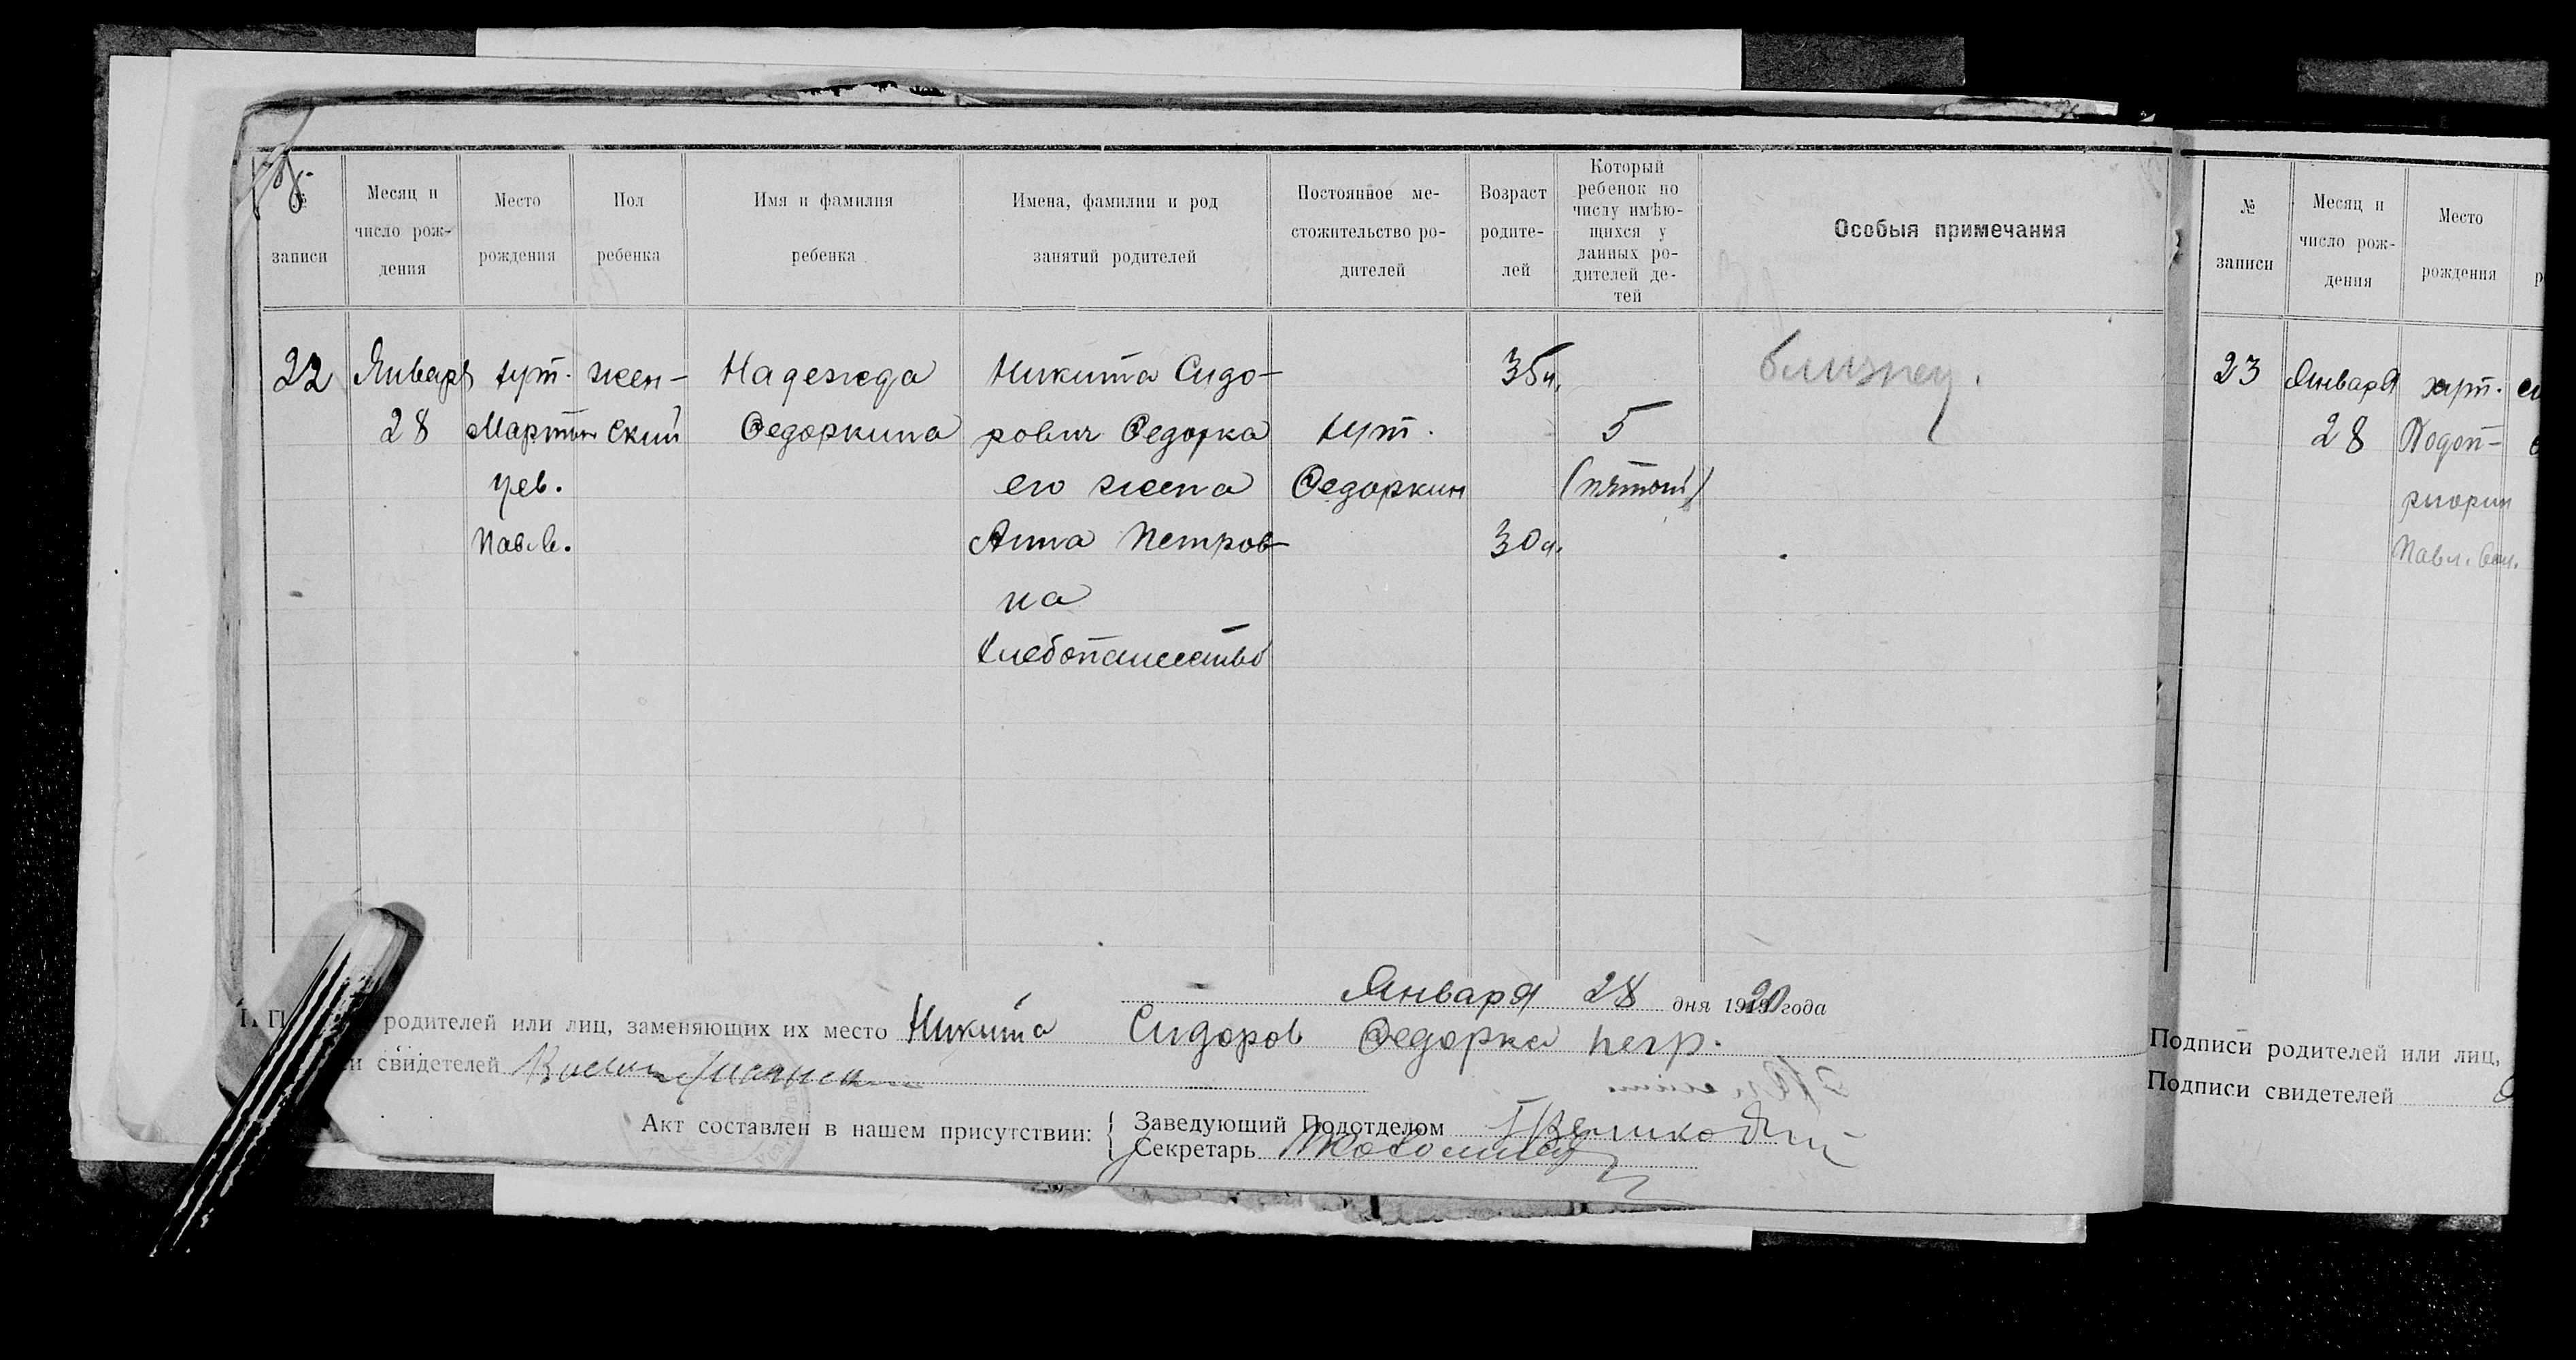 № записи
Месяц и число рождения
Место рождения
Пол ребенка
Имя и фамилия ребенка
Имена, фамилии и род занятий родителей
Постоянное местожительство родителей
Возраст родителей
Который ребенок по числу имѣющихся у данных родителей детей
Особыя примечания
22 Января хут. жен- Надежда Никита Сидо- 35л. близнец.
28 Мартын ский Федоркина рович Федорка хут. 5
цев. его жена Федоркин (пятый)
Павлв. Анна Петров- 30л.
на
хлебопашество
Января 28 дня 1920 года
родителей или лиц, заменяющих их место Никита Сидоров Федорка негр.
и свидетелей
Акт составлен в нашем присутствии:
Заведующий Подотделом
Секретарь
№ записи
Месяц и число рождения
Место рождения
23 Января хут.
28 Подоп-
Павл. вол.
Подписи родителей или лиц,
Подписи свидетелей